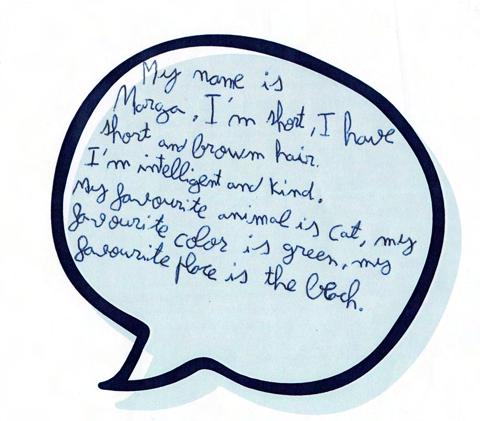 My name is
Marga, I'm short, I have
short and browm hair.
I'm intelligent and kind.
My favourite animal is cat, my
favourite color is green, my
favourite place is the beach.